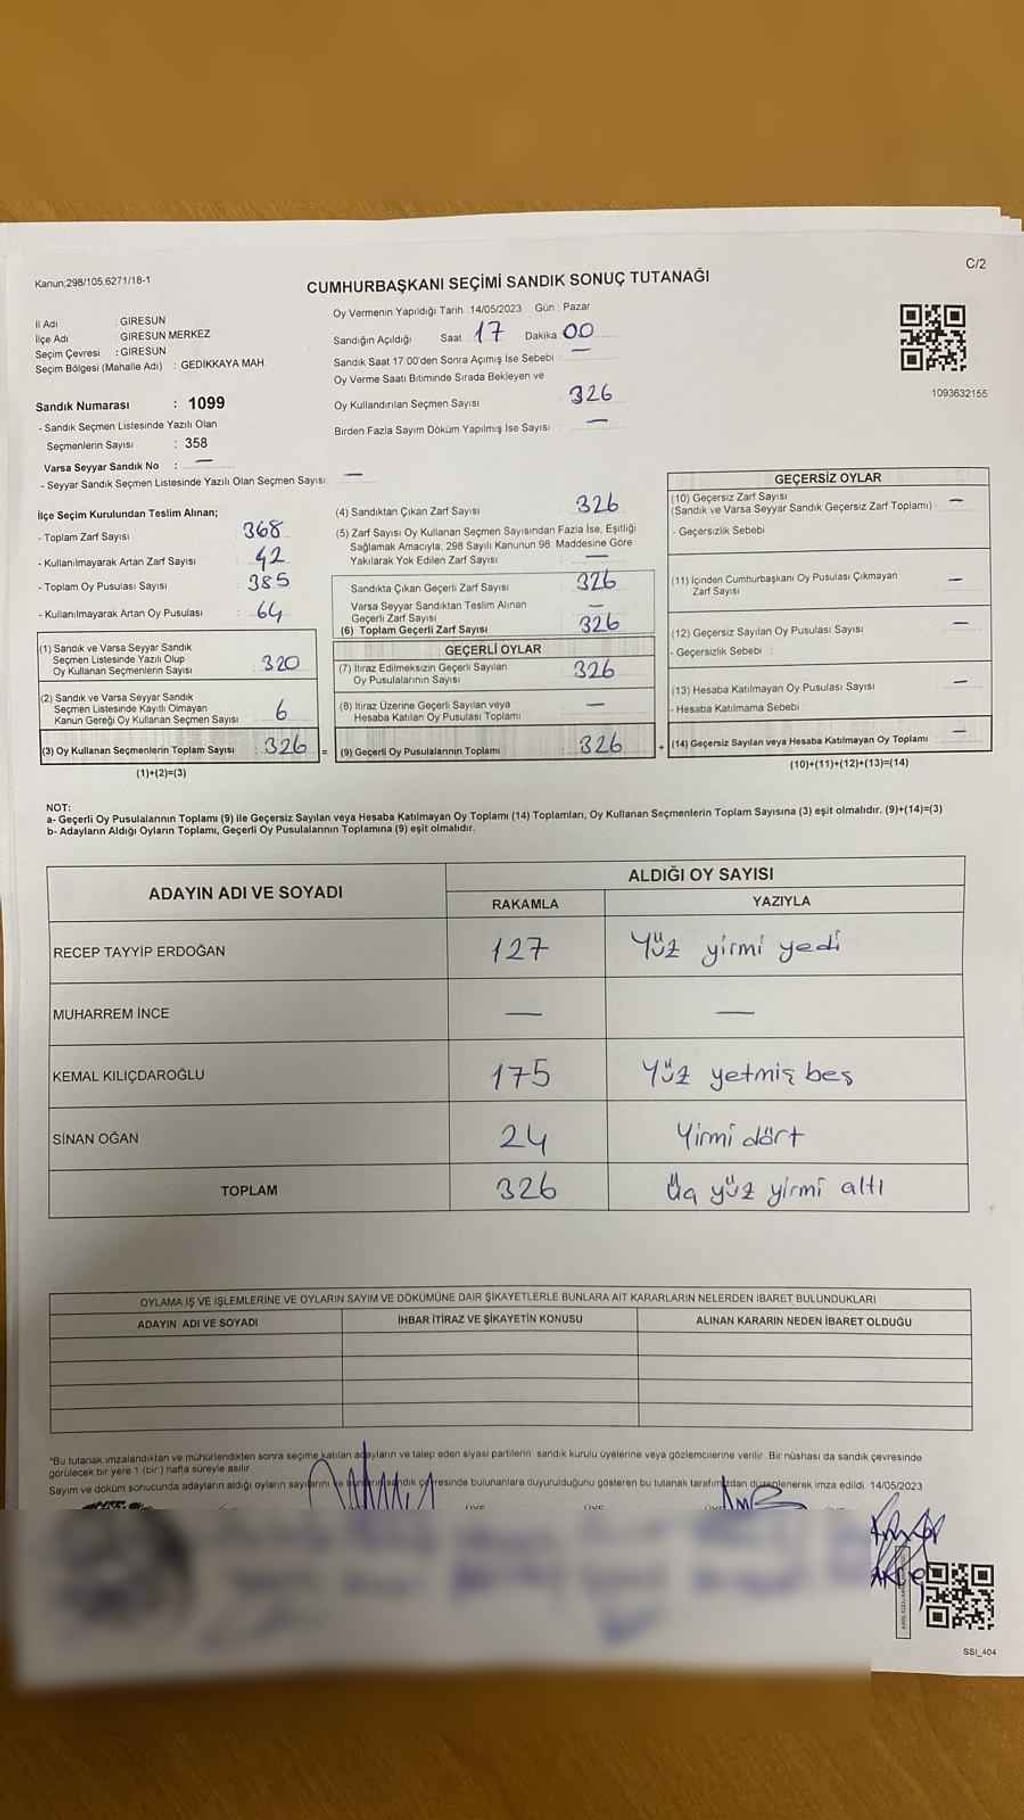 Kanun;298/105,6271/18-1
C/2
CUMHURBAŞKANI SEÇİMİ SANDIK SONUÇ TUTANAĞI
İl Adı : GİRESUN
İlçe Adı : GİRESUN MERKEZ
Seçim Çevresi : GİRESUN
Seçim Bölgesi (Mahalle Adı) : GEDİKKAYA MAH
Oy Vermenin Yapıldığı Tarih 14/05/2023 Gün : Pazar
Sandığın Açıldığı Saat 17 Dakika 00
Sandık Saat 17.00'den Sonra Açımış İse Sebebi —
Oy Verme Saati Bitiminde Sırada Bekleyen ve
Oy Kullandırılan Seçmen Sayısı 326
Birden Fazla Sayım Döküm Yapılmış İse Sayısı —
1093632155
Sandık Numarası : 1099
- Sandık Seçmen Listesinde Yazılı Olan
Seçmenlerin Sayısı : 358
Varsa Seyyar Sandık No : —
- Seyyar Sandık Seçmen Listesinde Yazılı Olan Seçmen Sayısı —
İlçe Seçim Kurulundan Teslim Alınan;
- Toplam Zarf Sayısı 368
- Kullanılmayarak Artan Zarf Sayısı 42
- Toplam Oy Pusulası Sayısı 385
- Kullanılmayarak Artan Oy Pusulası : 64
(1) Sandık ve Varsa Seyyar Sandık
Seçmen Listesinde Yazılı Olup
Oy Kullanan Seçmenlerin Sayısı 320
(2) Sandık ve Varsa Seyyar Sandık
Seçmen Listesinde Kayıtlı Olmayan
Kanun Gereği Oy Kullanan Seçmen Sayısı 6
(3) Oy Kullanan Seçmenlerin Toplam Sayısı : 326 =
(1)+(2)=(3)
(4) Sandıktan Çıkan Zarf Sayısı 326
(5) Zarf Sayısı Oy Kullanan Seçmen Sayısından Fazla İse, Eşitliği
Sağlamak Amacıyla, 298 Sayılı Kanunun 98. Maddesine Göre
Yakılarak Yok Edilen Zarf Sayısı —
Sandıkta Çıkan Geçerli Zarf Sayısı 326
Varsa Seyyar Sandıktan Teslim Alınan
Geçerli Zarf Sayısı —
(6) Toplam Geçerli Zarf Sayısı 326
GEÇERLİ OYLAR
(7) İtiraz Edilmeksizin Geçerli Sayılan
Oy Pusulalarının Sayısı 326
(8) İtiraz Üzerine Geçerli Sayılan veya
Hesaba Katılan Oy Pusulası Toplamı —
(9) Geçerli Oy Pusulalarının Toplamı 326 +
GEÇERSİZ OYLAR
(10) Geçersiz Zarf Sayısı
(Sandık ve Varsa Seyyar Sandık Geçersiz Zarf Toplamı) —
- Geçersizlik Sebebi
(11) İçinden Cumhurbaşkanı Oy Pusulası Çıkmayan
Zarf Sayısı —
(12) Geçersiz Sayılan Oy Pusulası Sayısı —
- Geçersizlik Sebebi :
(13) Hesaba Katılmayan Oy Pusulası Sayısı —
- Hesaba Katılmama Sebebi
(14) Geçersiz Sayılan veya Hesaba Katılmayan Oy Toplamı —
(10)+(11)+(12)+(13)=(14)
NOT:
a- Geçerli Oy Pusulalarının Toplamı (9) ile Geçersiz Sayılan veya Hesaba Katılmayan Oy Toplamı (14) Toplamları, Oy Kullanan Seçmenlerin Toplam Sayısına (3) eşit olmalıdır. (9)+(14)=(3)
b- Adayların Aldığı Oyların Toplamı, Geçerli Oy Pusulalarının Toplamına (9) eşit olmalıdır.
ADAYIN ADI VE SOYADI
ALDIĞI OY SAYISI
RAKAMLA YAZIYLA
RECEP TAYYİP ERDOĞAN 127 Yüz yirmi yedi
MUHARREM İNCE — —
KEMAL KILIÇDAROĞLU 175 Yüz yetmiş beş
SİNAN OĞAN 24 Yirmi dört
TOPLAM 326 Üç yüz yirmi altı
OYLAMA İŞ VE İŞLEMLERİNE VE OYLARIN SAYIM VE DÖKÜMÜNE DAİR ŞİKAYETLERLE BUNLARA AİT KARARLARIN NELERDEN İBARET BULUNDUKLARI
ADAYIN ADI VE SOYADI İHBAR İTİRAZ VE ŞİKAYETİN KONUSU ALINAN KARARIN NEDEN İBARET OLDUĞU
"Bu tutanak imzalandıktan ve mühürlendikten sonra seçime katılan adayların ve talep eden siyasi partilerin sandık kurulu üyelerine veya gözlemcilerine verilir. Bir nüshası da sandık çevresinde
görülecek bir yere 1 (bir) hafta süreyle asılır.
Sayım ve döküm sonucunda adayların aldığı oyların sayılarını çevresinde bulunanlara duyurulduğunu gösteren bu tutanak tarafımızdan düzenlenerek imza edildi. 14/05/2023
SSI_404